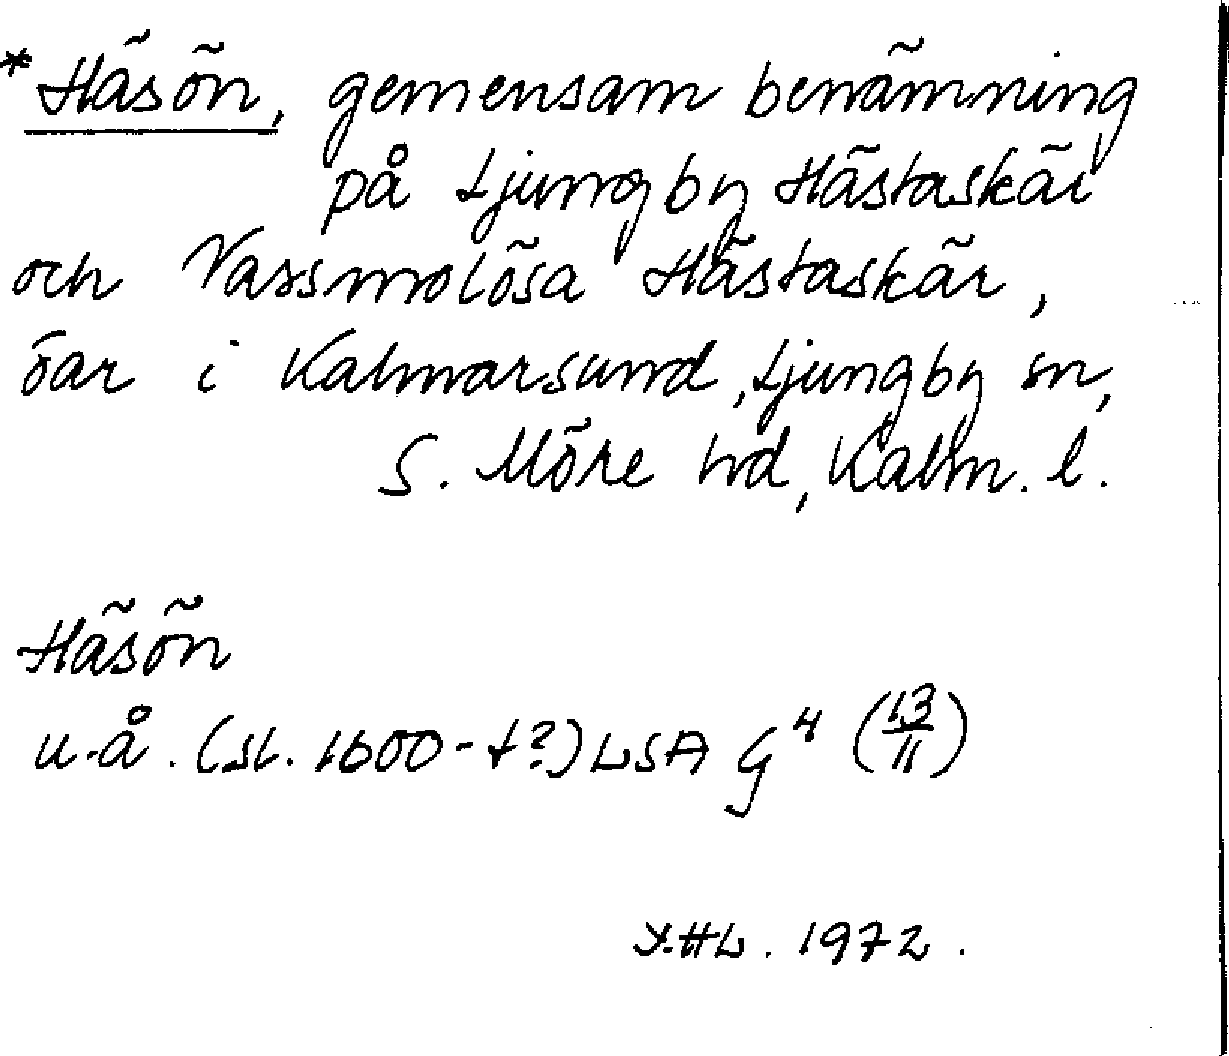 *Häsön, gemensam benämning
på Ljungby Hästaskär
och Vassmolösa Hästaskär,
öar i Kalmarsund, Ljungby sn,
S. Möre hd, Kalm. l.
Häsön
u.å. (sl. 1600-t?) LSA G4 (13/11)
Y.HL. 1972.